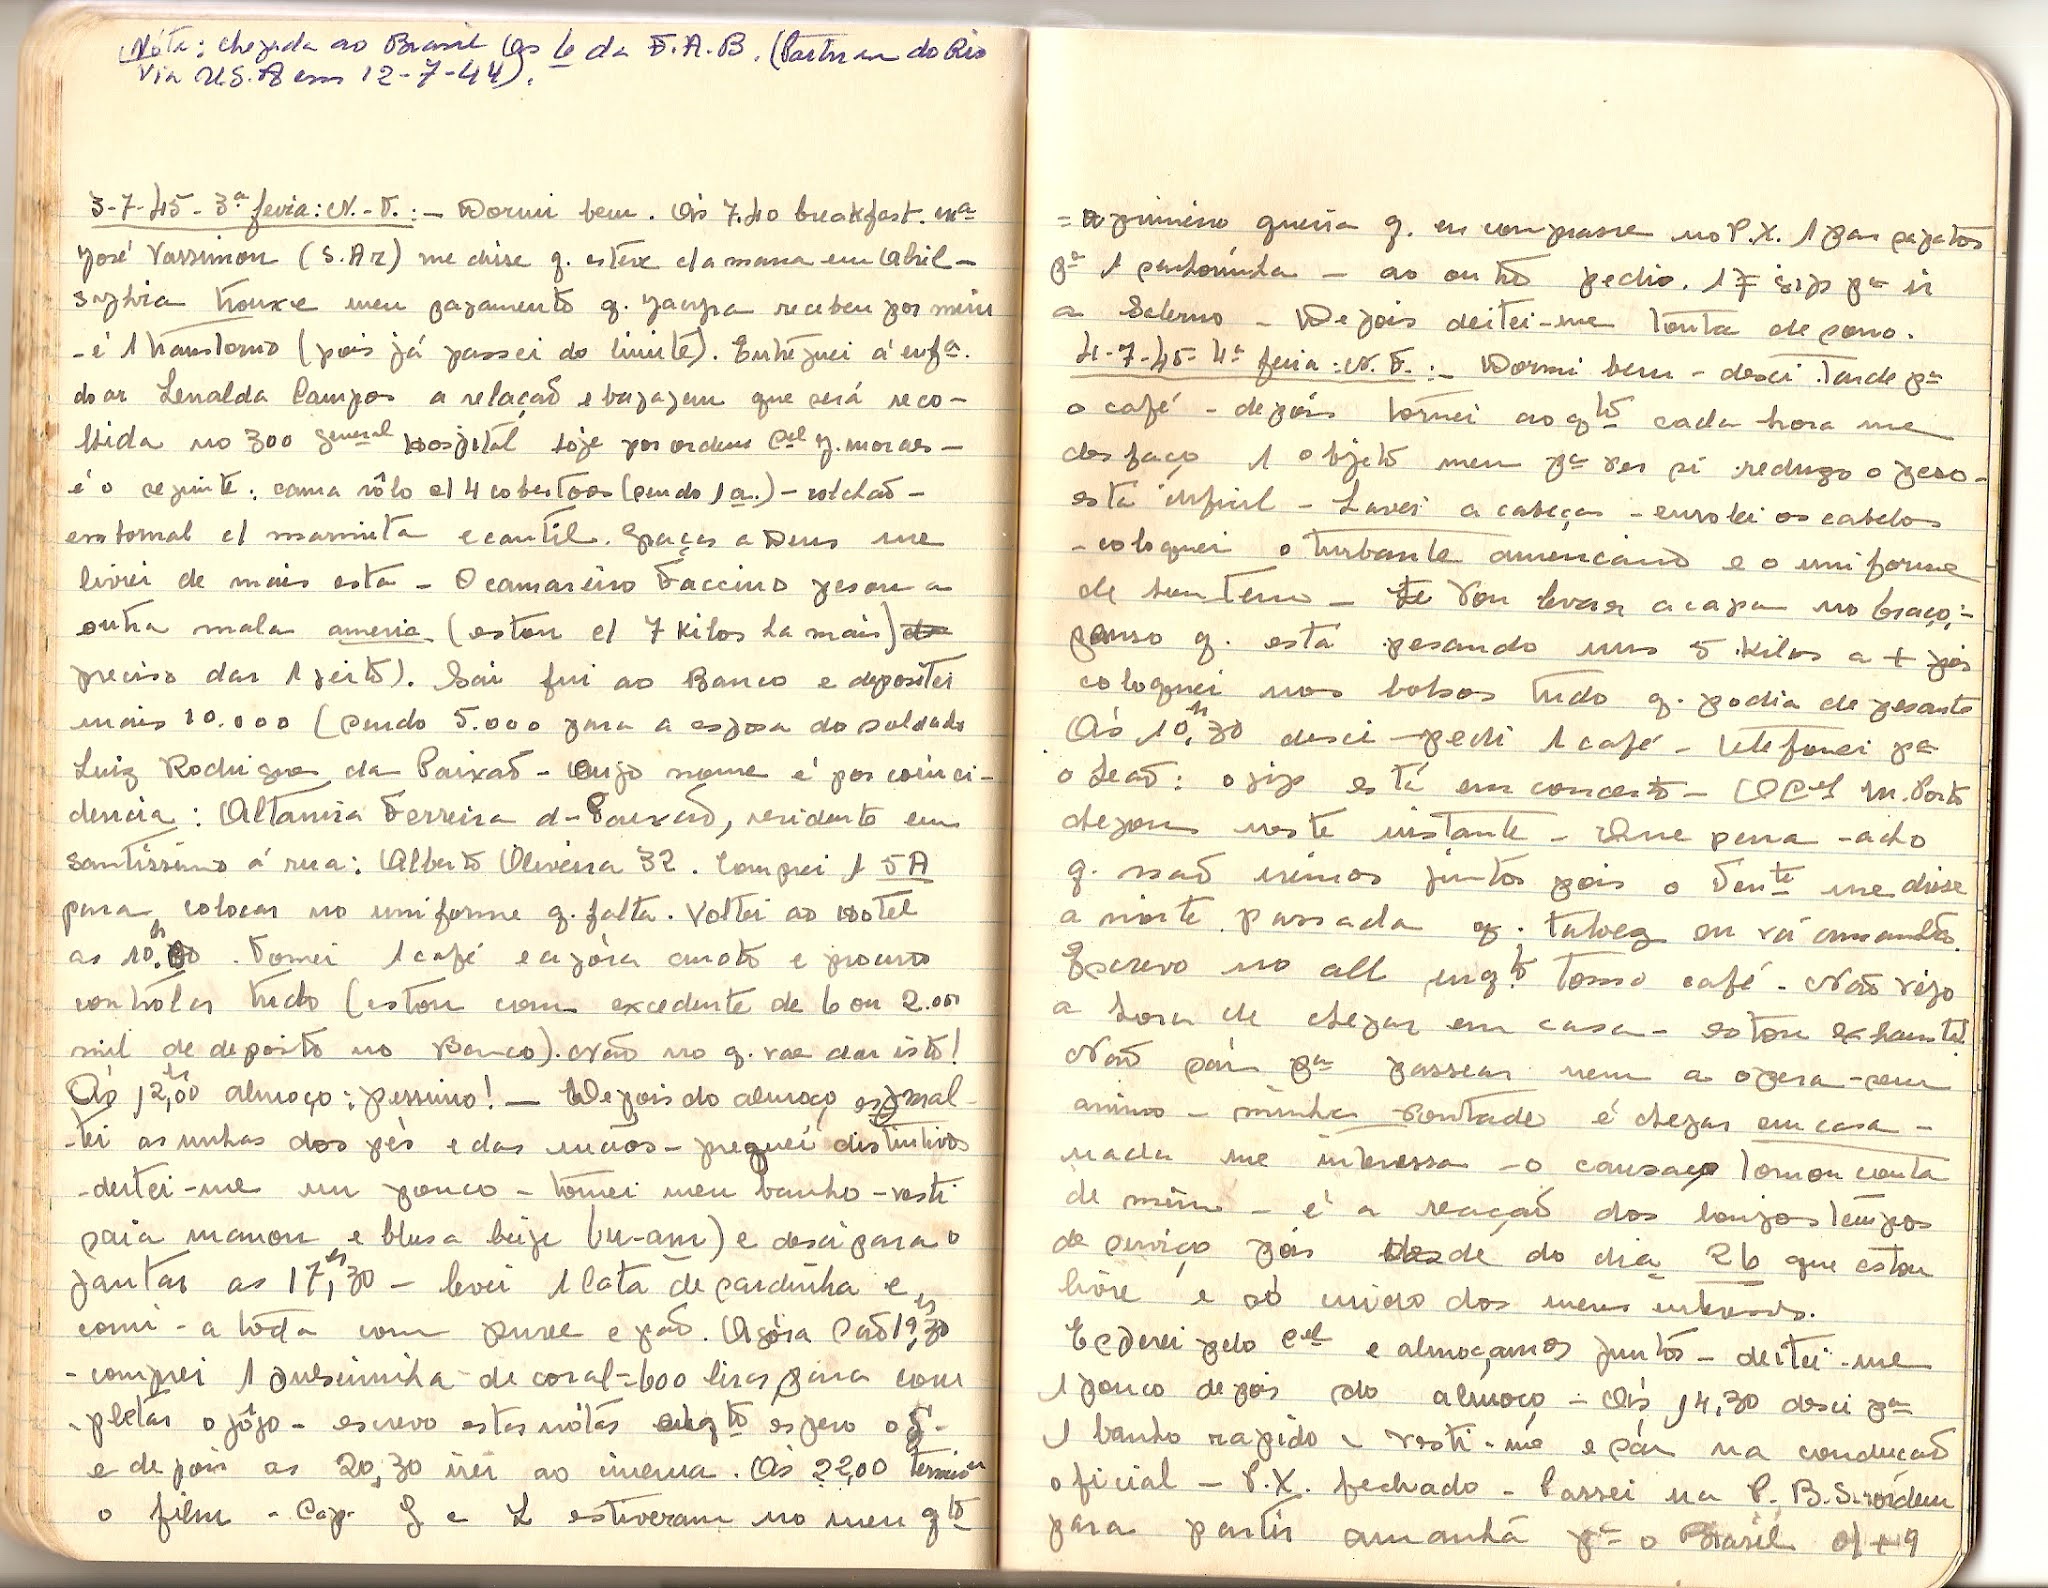 Nóta: chegada ao Brasil as 6 da F.A.B. (Partiram do Rio
via U.S.A em 12-7-44).
3-7-45 - 3ª feria: N.-T.: - Dormi bem. Ás 7.40 breakfest.
José Vassimon (S.Ar) me disse q. esteve
trouxe meu pagamento q. recebeu por mim
- é 1 transtorno (pois já passei do limite). Entreguei á enfª.
do ar Lenalda Campos a relação e bagagem que será reco-
lhida no 300 general hospital hoje por ordem Cel G. Moraes -
é o seguinte: cama rôlo c/ 4 cobertores (sendo 1 a.) - colchão -
enxtornal c/ marmita e cantil. Graças a Deus me
livrei de mais esta - O camareiro Faccino pesou a
outra mala americ. (estou c/ 7 kilos ha mais)
preciso dar 1 jeito). Sai fui ao Banco e depositei
mais 10.000 (sendo 5.000 para a esposa do soldado
Luiz Rodrigues da Paixão - cujo nome é por coinci-
dencia: Altamira Ferreira d- Paixão, residente em
Santissimo á rua: Alberto Oliveira 32. Comprei 1 5A
para colocar no uniforme q. falta. Voltei ao hotel
as 10.hs . Tomei 1 café e agóra anoto e procuro
controlar tudo (estou com excedente de 6 ou 2.000
mil de deposito no Banco). Não no q. vae dar isto!
Ás 12,hs00 almoço: pessimo! - Depois do almoço esmal-
-tei as unhas dos pés e das mãos - preguei distintivos
- deitei-me um pouco - tomei meu banho - vesti
saia marron e blusa beije (w-am) e desci para o
jantar as 17,hs30 - levei 1 lata de sardinha e
comi - a tôda com puree e pão. Agóra são 19,hs30
- comprei 1 pulseirinha de coral = 600 liras para com
- pletar o jôgo - escrevo estas nótas enqto espero o
e depois as 20,30 irei ao cinema. Ás 22,00 terminou
o film - Cap. G e L estiveram no meu qto
= O primeiro queria q. eu comprasse no P.X. 1 par sapatos
pª 1 senhorinha - ao outro pedio. 1 jip pª ir
a Salerno - Depois deitei-me tonta de sono.
4-7-45 - 4ª feria: N.T.: - Dormi bem - desci tarde pª
o café - depois tornei ao qto cada hora me
desfaço 1 objeto meu pª ver si reduzo o peso -
esta incrivel - Lavei a cabeça - enrolei os cabelos
- coloquei o turbante americano e o uniforme
de - Vou levar a capa no braço; -
penso q. esta pesando uns 5 kilos a + pois
coloquei nos bolsos tudo q. podia de pesante
Ás 10,hs30 desci - pedi 1 café - telefonei pª
o Leão: o jip está em concerto - O Cel M. Porto
chegou neste instante - Que pena - acho
q. não iremos juntos pois o Tente me disse
a noite passada q. talvez eu vá amanhã.
Escrevo no all enqto tomo café - Não vejo
a hora de chegar em casa - estou exhausta!
Não saí pª passear nem a opera - sem
animo - minha vontade é chegar em casa -
nada me interessa - o cansaço tomou conta
de mim - é a reação dos longos tempos
de serviço pois desde do dia 26 que estou
livre e só cuido dos meus interesses.
Esperei pelo Cel e almoçamos juntos - deitei-me
1 pouco depois do almoço - Ás 14,30 desci pª
1 banho rapido - vesti-me e saí na condução
oficial - P.X. fechado - Passei na P.B.S. - órdem
para partir amanhã pª o Brasil c/ + 9